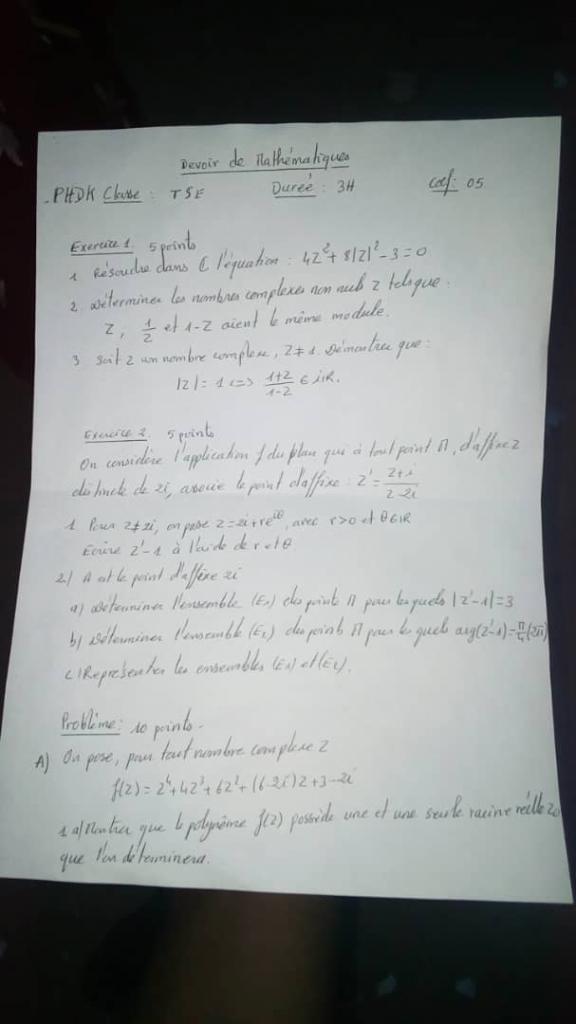 Devoir de Mathématiques
PHDK Classe : TSE Durée : 3H Coef : 05
Exercice 1. 5 points
1 Résoudre dans ℂ l'équation : 4Z² + 8|Z|² - 3 = 0
2. Déterminer les nombres complexes non nuls Z tels que :
Z, 1/Z et 1-Z aient le même module.
3 Soit Z un nombre complexe, Z ≠ 1. Démontrer que :
|Z| = 1 <=> (1+Z)/(1-Z) ∈ iℝ.
Exercice 2. 5 points
On considère l'application f du plan qui à tout point M, d'affixe Z
distincte de 2i, associe le point d'affixe : Z' = (Z+i)/(Z-2i)
1. Pour Z ≠ 2i, on pose Z = 2i + re^iθ, avec r>0 et θ ∈ ℝ
Ecrire Z'-1 à l'aide de r et θ
2.) A est le point d'affixe 2i
a) Déterminer l'ensemble (E1) des points M pour lesquels |Z'-1| = 3
b) Déterminer l'ensemble (E2) des points M pour lesquels arg(Z'-1) = π/4 (2π)
c) Représenter les ensembles (E1) et (E2).
Problème : 10 points -
A) On pose, pour tout nombre complexe Z
f(Z) = Z⁴ + 4Z³ + 6Z² + (6-2i)Z + 3-2i
1 a) Montrer que le polynôme f(Z) possède une et une seule racine réelle Z₀
que l'on déterminera.